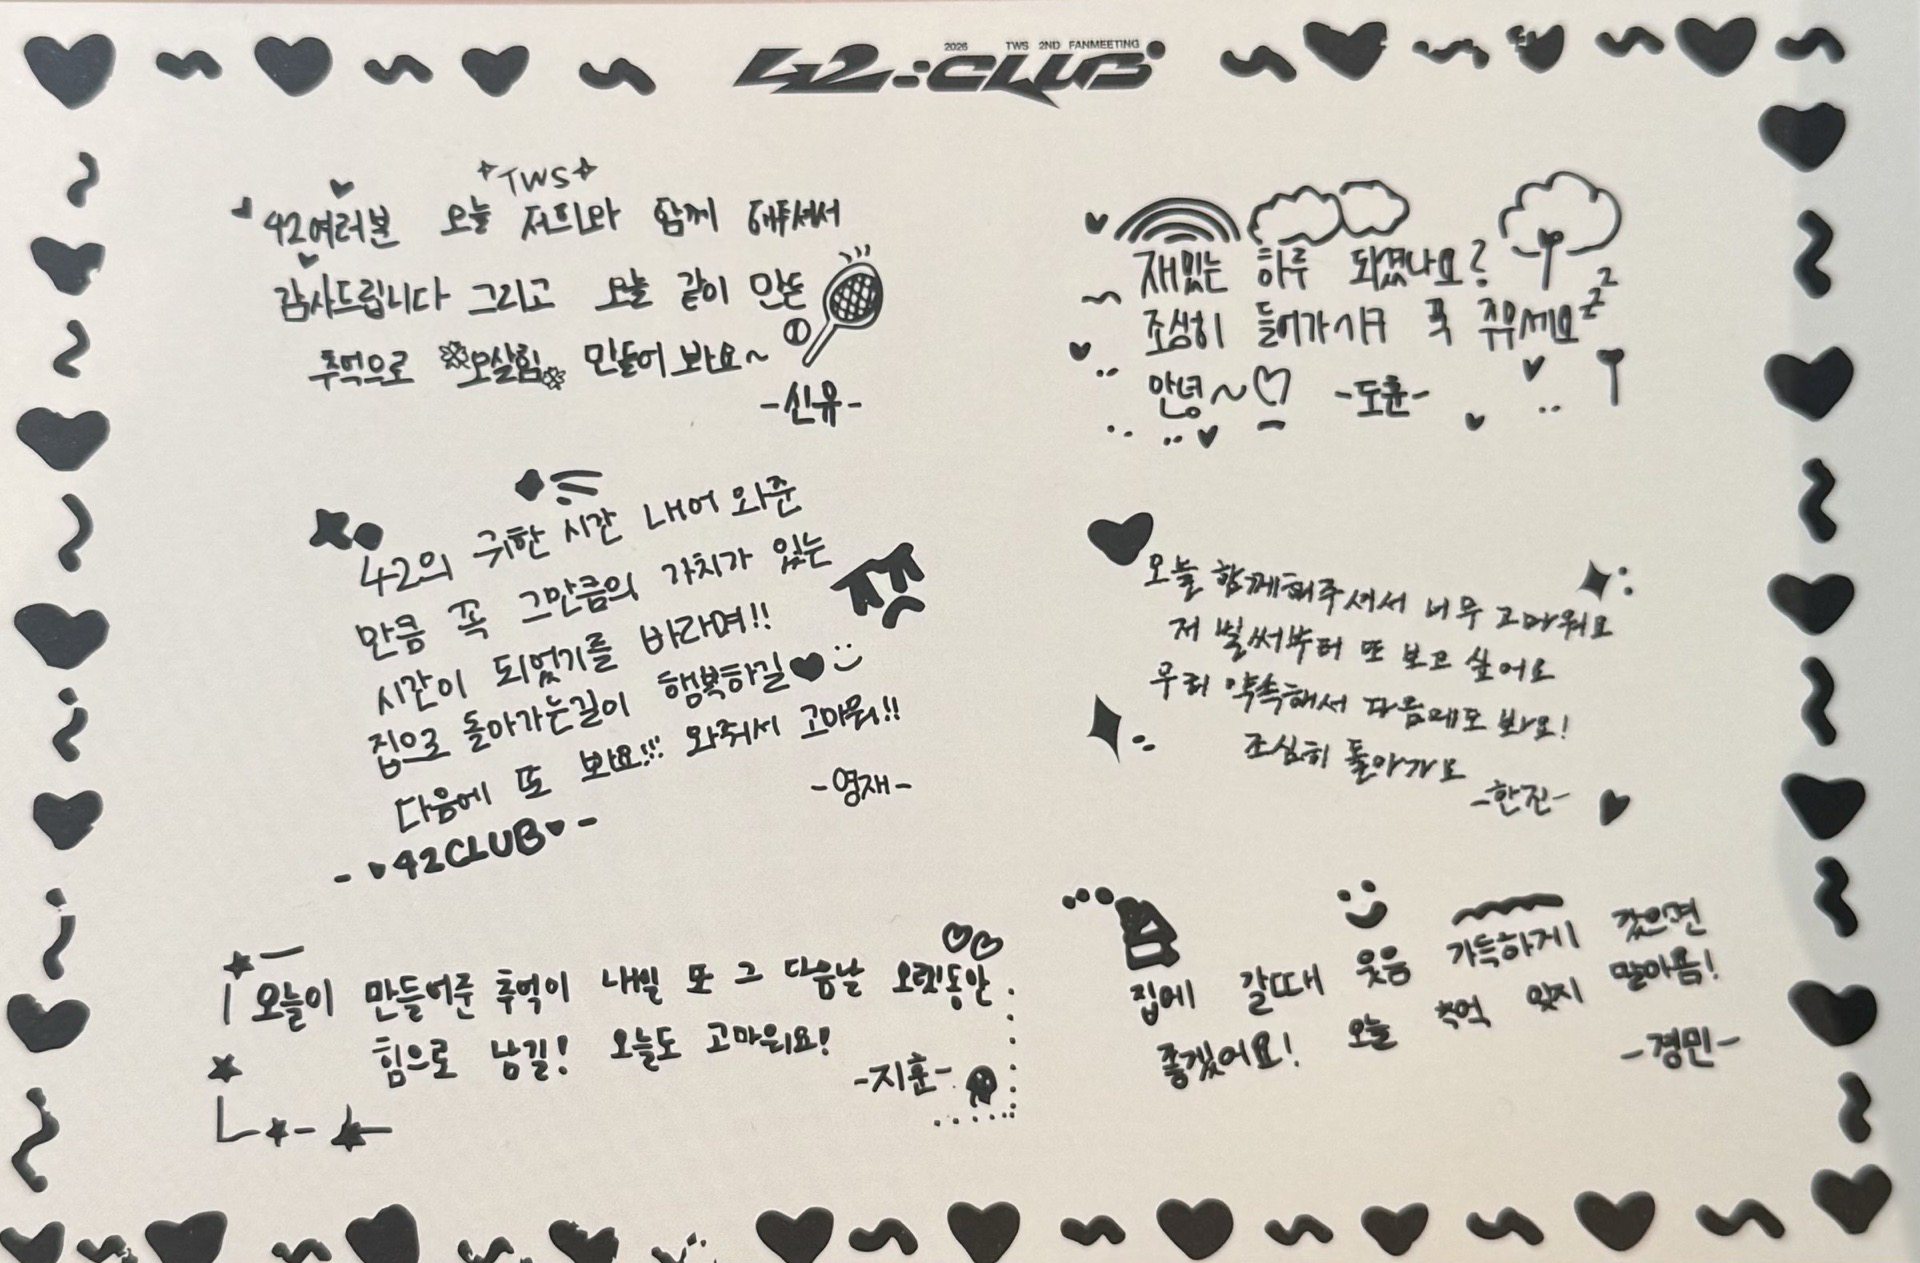 2026 TWS 2ND FANMEETING
42:CLUB
TWS
42여러분 오늘 저희와 함께 해주셔서
감사드립니다 그리고 오늘 같이 만든
추억으로 오살힘 만들어 봐요~
-신유-
재밌는 하루 되셨나요?
조심히 들어가시구 푹 주무세요 zzz
안녕~♡ -도훈-
42의 귀한 시간 내어 와준
만큼 꼭 그만큼의 가치가 있는
시간이 되었기를 바라며!!
집으로 돌아가는길이 행복하길♥
다음에 또 봐요!!! 와줘서 고마워!!
-영재-
- ♥42CLUB♥ -
오늘 함께해주셔서 너무 고마워요
저 벌써부터 또 보고 싶어요
우리 약속해서 다음에도 봐요!
조심히 돌아가요
-한진-
오늘이 만들어준 추억이 내일 또 그 다음날 오랫동안
힘으로 남길! 오늘도 고마워요!
-지훈-
집에 갈때 웃음 가득하게 갔으면
좋겠어요! 오늘 추억 잊지 말아욤!
-경민-